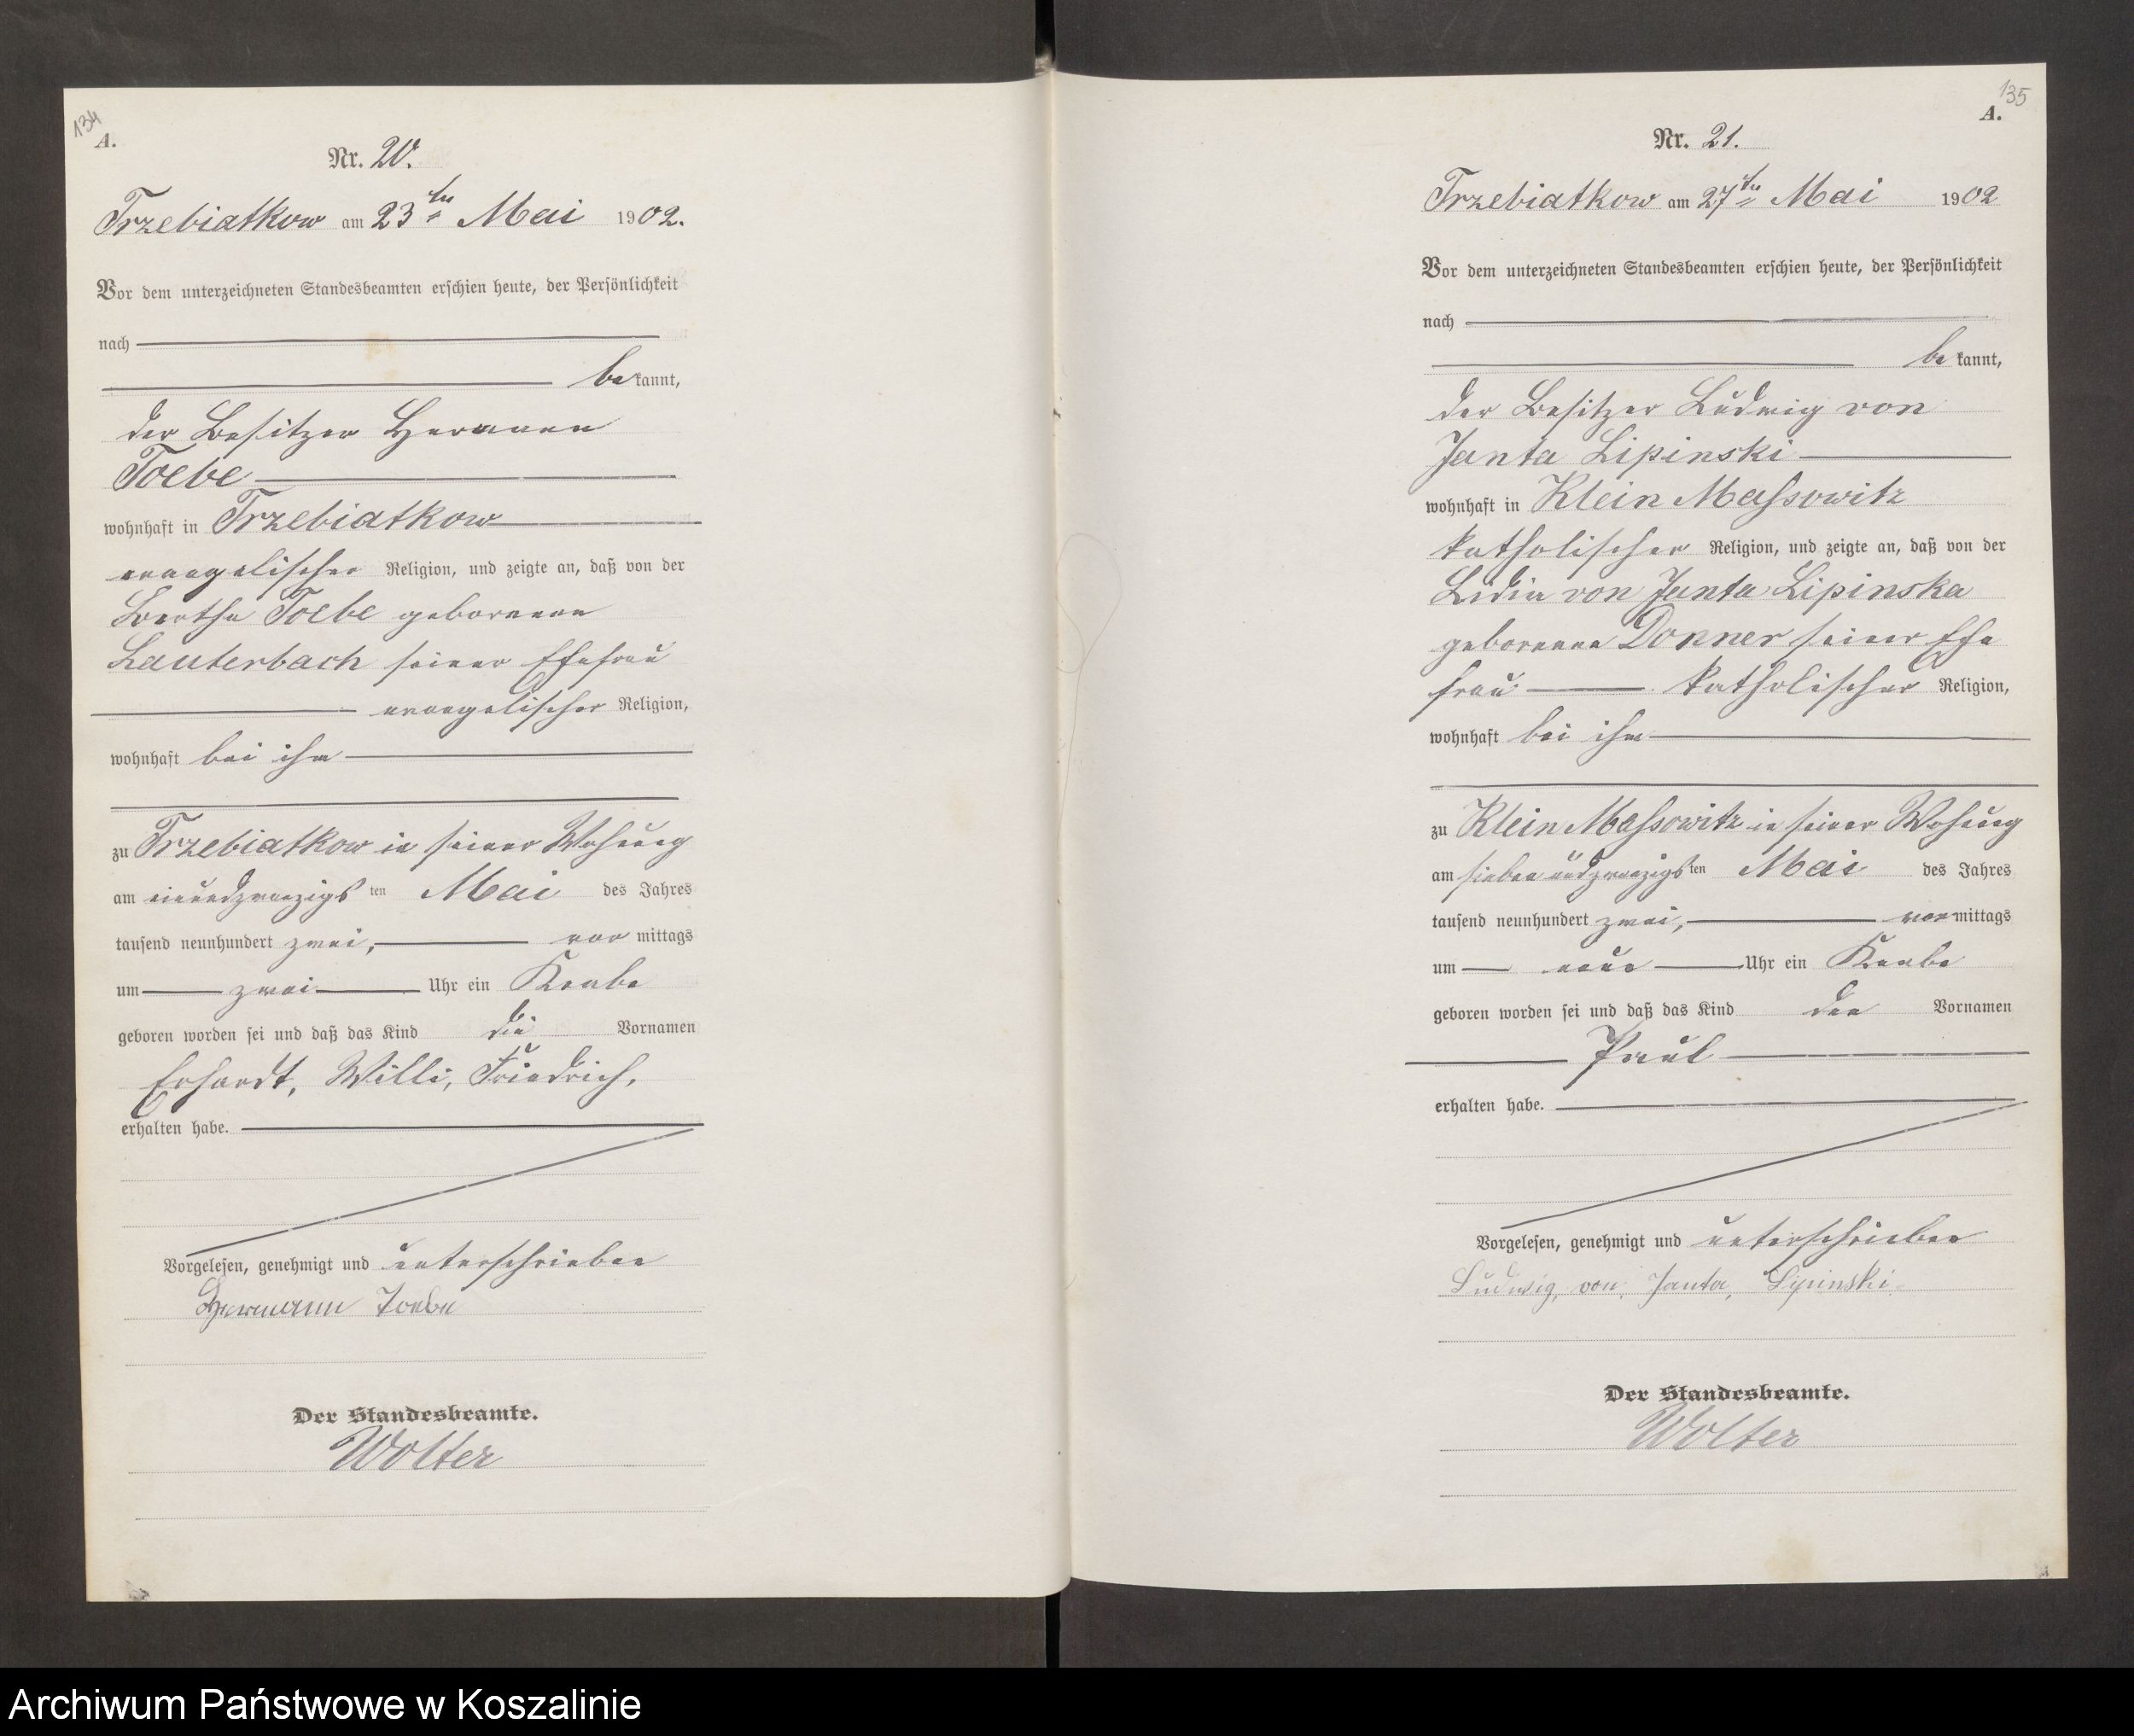 134
A.
Nr. 20.
Trzebiatkow am 23ten Mai 1902.
Vor dem unterzeichneten Standesbeamten erschien heute, der Persönlichkeit
nach
bekannt,
der Besitzer Hermann
Toebe
wohnhaft in Trzebiatkow
evangelischer Religion, und zeigte an, daß von der
Bertha Toebe geborenen
Lauterbach seiner Ehefrau
evangelischer Religion,
wohnhaft bei ihm
zu Trzebiatkow in seiner Wohnung
am einundzwanzigsten Mai des Jahres
tausend neunhundert zwei, vormittags
um zwei Uhr ein Knabe
geboren worden sei und daß das Kind die Vornamen
Erhardt, Willi, Friedrich,
erhalten habe.
Vorgelesen, genehmigt und unterschrieben
Hermann Toebe
Der Standesbeamte.
Wolter
135
A.
Nr. 21.
Trzebiatkow am 27ten Mai 1902
Vor dem unterzeichneten Standesbeamten erschien heute, der Persönlichkeit
nach
bekannt,
der Besitzer Ludwig von
Janta Lipinski
wohnhaft in Klein Massowitz
katholischer Religion, und zeigte an, daß von der
Lidia von Janta Lipinska
geborenen Donner seiner Ehe
frau katholischer Religion,
wohnhaft bei ihm
zu Klein Massowitz in seiner Wohnung
am siebenundzwanzigsten Mai des Jahres
tausend neunhundert zwei, vormittags
um neun Uhr ein Knabe
geboren worden sei und daß das Kind den Vornamen
Paul
erhalten habe.
Vorgelesen, genehmigt und unterschrieben
Ludwig, von, Janta, Lipinski.
Der Standesbeamte.
Wolter
Archiwum Państwowe w Koszalinie